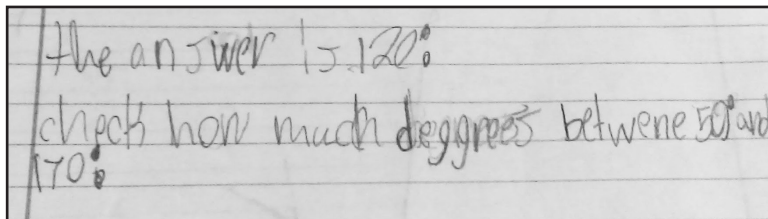 the answer is 120°
check how much deggrees betwene 50° and
170°